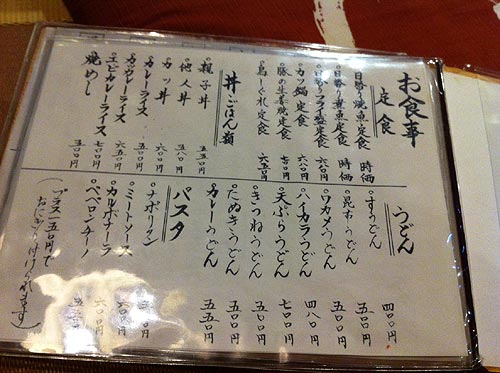 お食事
定食
日替り焼魚定食 時価
日替り煮魚定食 時価
日替りフライ盛定食 六八〇円
カツ鍋定食 六八〇円
豚の生姜焼定食 七〇〇円
定食 六五〇円
丼・ごはん類
親子丼 五五〇円
他人丼 五八〇円
カツ丼 六〇〇円
カレーライス 五五〇円
カツカレーライス 六五〇円
エビカレーライス 七〇〇円
焼めし 五〇〇円
うどん
すうどん 四〇〇円
昆布うどん 五五〇円
ワカメうどん 五五〇円
ハイカラうどん 四八〇円
天ぷらうどん 七〇〇円
きつねうどん 五五〇円
たぬきうどん 五五〇円
カレーうどん 五五〇円
パスタ
ナポリタン
ミートソース
カルボナーラ 六〇〇円
ペペロンチーノ
(プラス一五〇円で
おにぎり付けられます)